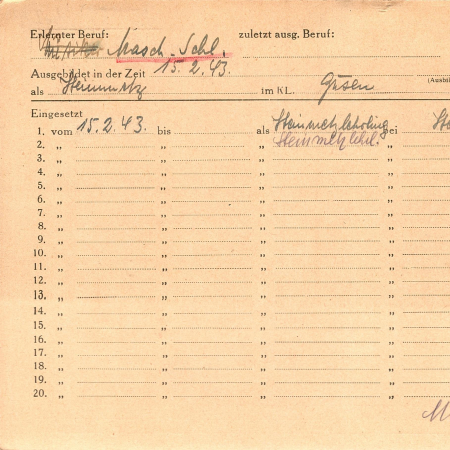 Erlernter Beruf: Masch.-Schl. zuletzt ausg. Beruf:
Ausgebildet in der Zeit 15.2.43.
als Steinmetz im KL. Gusen (Ausbil
Eingesetzt
1. vom 15.2.43. bis als Steinmetzlehrling bei St
2. „ „ „ Steinmetzlehrl. „
3. „ „ „ „
4. „ „ „ „
5. „ „ „ „
6. „ „ „ „
7. „ „ „ „
8. „ „ „ „
9. „ „ „ „
10. „ „ „ „
11. „ „ „ „
12. „ „ „ „
13. „ „ „ „
14. „ „ „ „
15. „ „ „ „
16. „ „ „ „
17. „ „ „ „
18. „ „ „ „
19. „ „ „ „
20. „ „ „ „